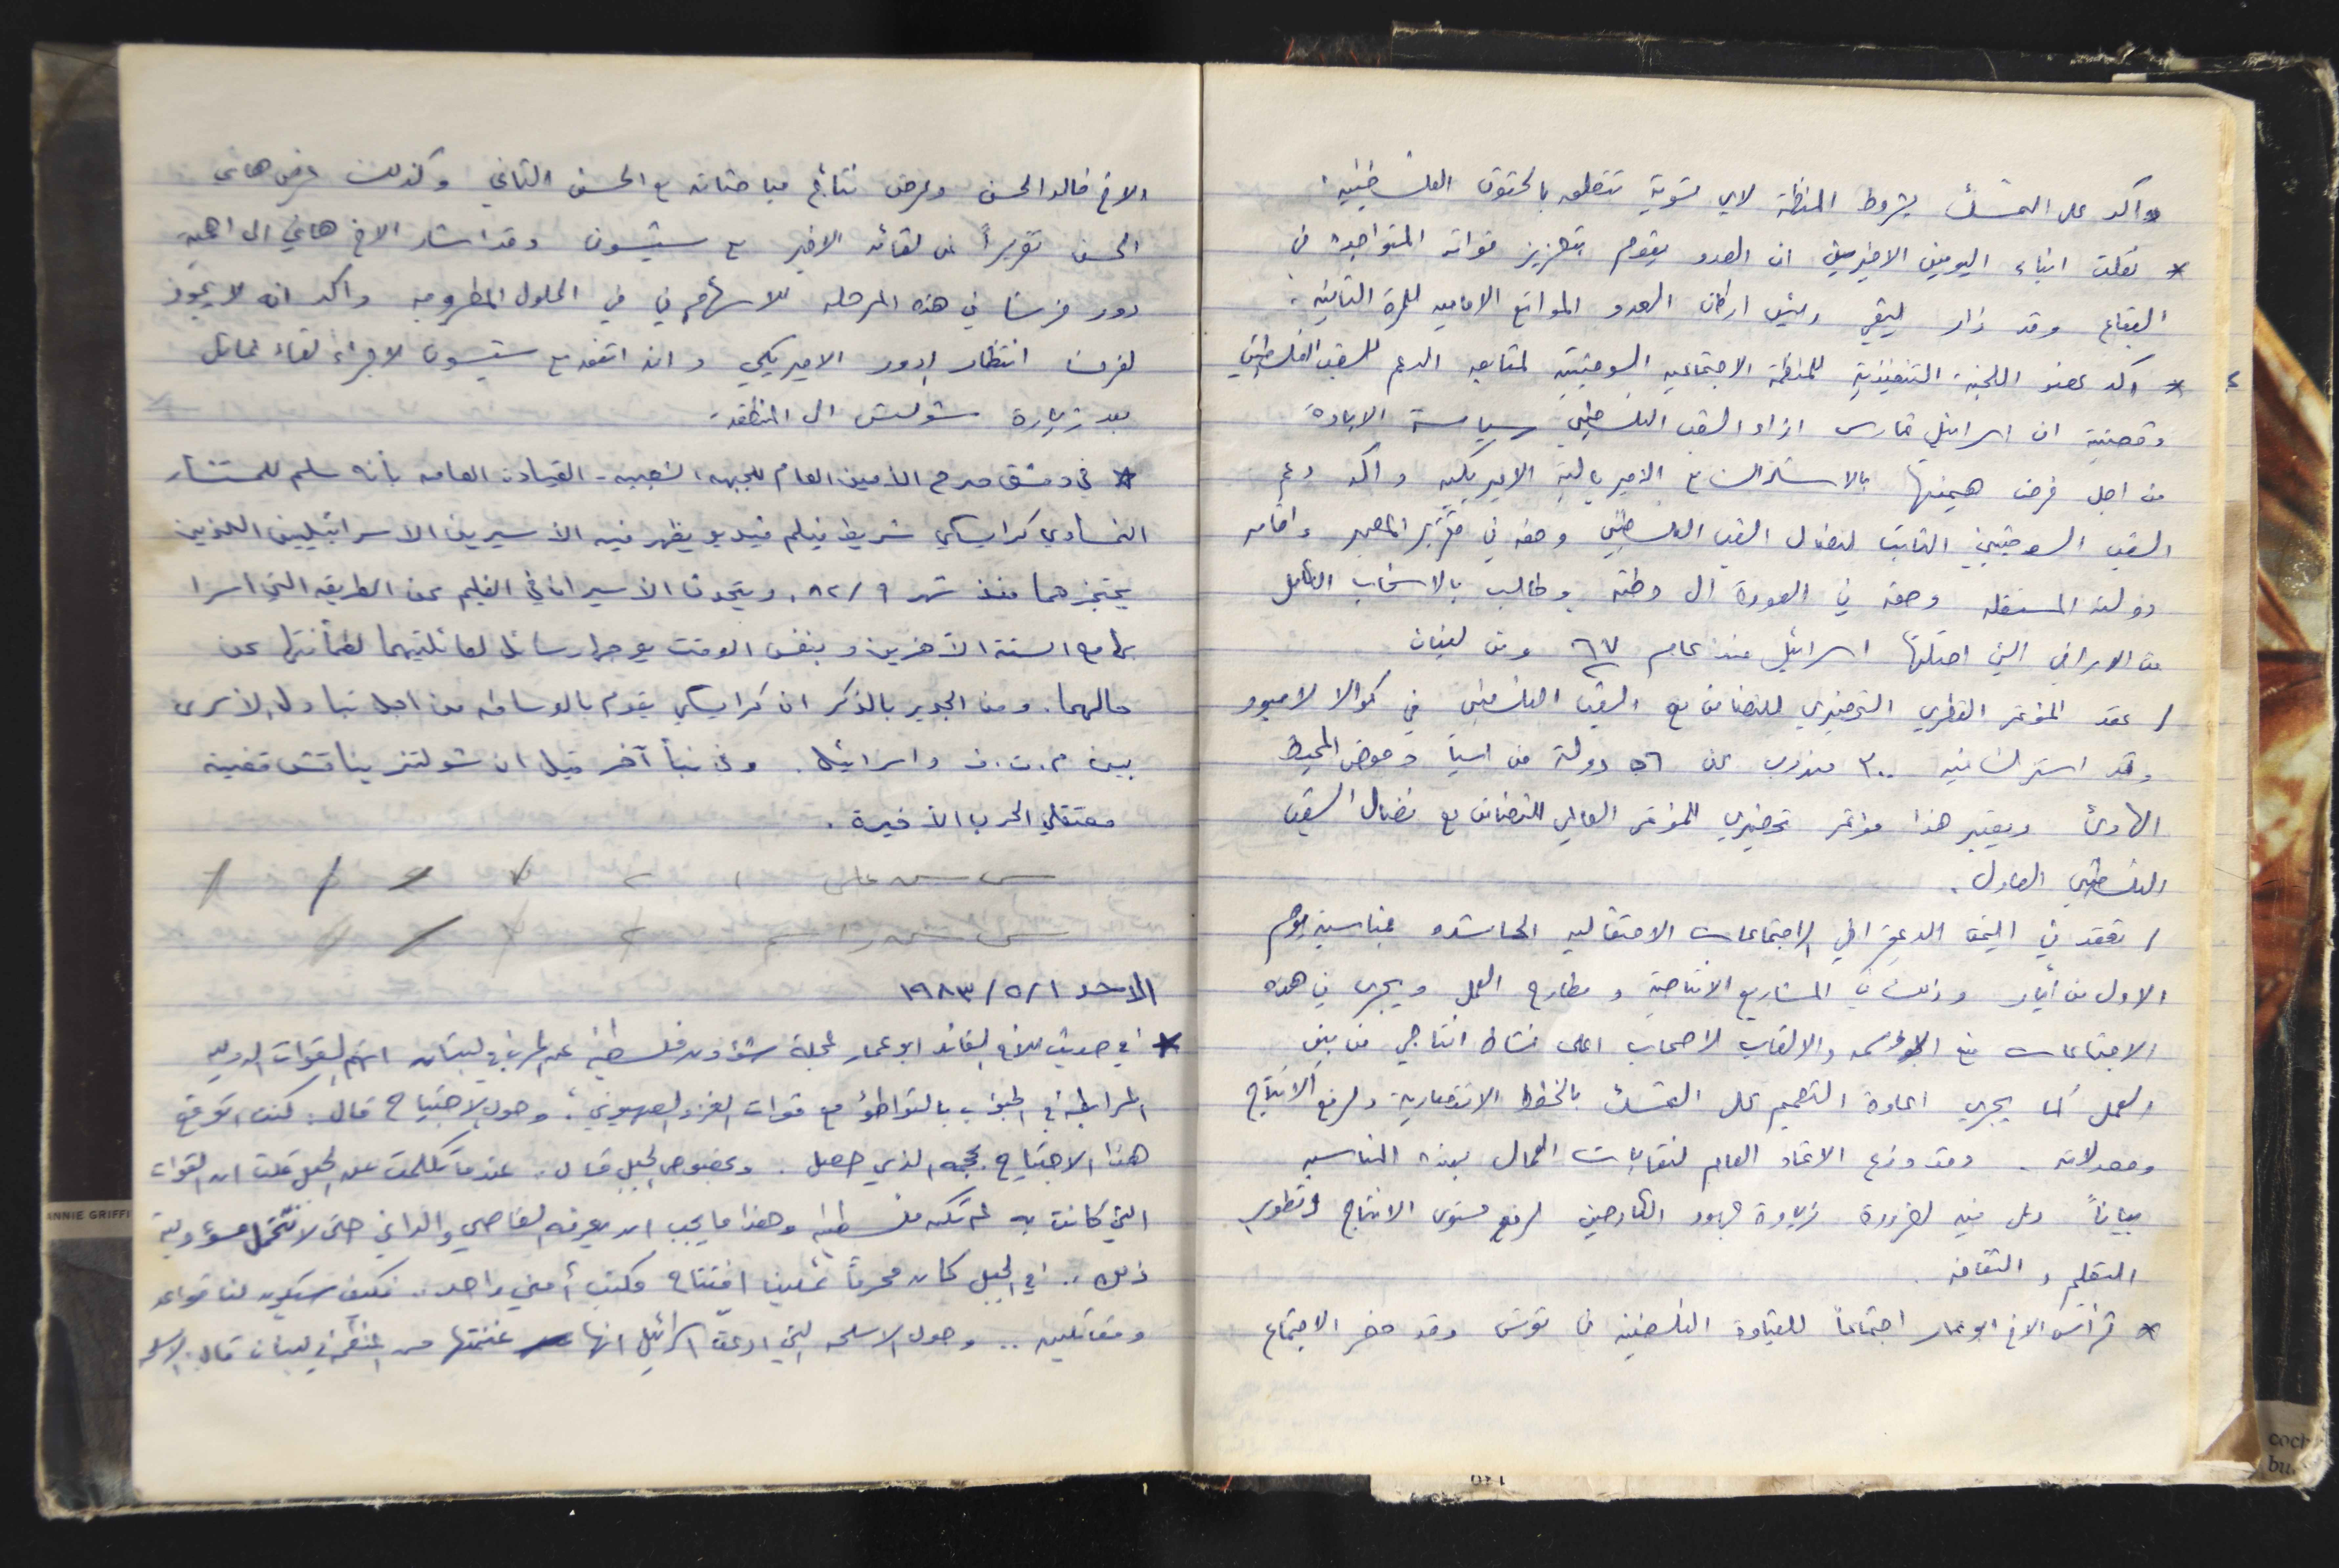 واكد على التمسك بشروط المنظمة لاي تسوية تتعلق بالحقوق الفلسطينية.
* نقلت انباء اليومين الاخيرين ان العدو يقوم بتعزيز قواته المتواجدة في
البقاع وقد زار ليفي رئيس اركان العدو المواقع الاماميه للمرة الثانية.
* اكد عضو اللجنة التنفيذية للمنظمة الاجتماعيه السوفيتية لمتابعه الدعم للشعب الفلسطيني
وقضيته ان اسرائيل تمارس ازاء الشعب الفلسطيني سياسة الابادة
من اجل فرض هيمنتها بالاشتراك مع الامبريالية الامريكيه واكد دعم
الشعب السوفييتي الثابت لنضال الشعب الفلسطيني وحقه في تقرير المصير واقامه
دولته المستقله وحقه في العودة الى وطنه وطالب بالانسحاب الكامل
من الاراضي التي احتلتها اسرائيل منذ عام ٦٧ ومن لبنان
/ عقد المؤتمر القطري التحضيري للتضامن مع الشعب الفلسطيني في كوالا لامبور
وقد اشترك فيه ٣٠٠ مندوب عن ٥٦ دولة من اسيا وحوض المحيط
الهادئ ويعتبر هذا مؤتمر تحضيري للمؤتمر العالمي للتضامن مع نضال الشعب
الفلسطيني العادل.
/ تعقد في اليمن الديمقراطي الاجتماعات الاحتفاليه الحاشده بمناسبة يوم
الاول من أيار وذلك في المشاريع الانتاجية و مطارح العمل ويجري في هذه
الاجتماعات منح الاوسمه والالقاب لاصحاب اعلى نشاط انتاجي من بين
العمل كما يجري اعادة التصميم على التمسك بالخطط الاقتصادية ولرفع الانتاج
ومعدلاته. وقد وزع الاتحاد العام لنقابات العمال بهذه المناسبه
بياناً دعى فيه لضرورة زيادة جهود الكادحين لرفع مستوى الانتاج وتطوير
التعليم و الثقافه.
* ترأس الاخ ابو عمار اجتماعاً للقيادة الفلسطينيه في تونس وقد حضر الاجتماع
الاخ خالد الحسن وعرض نتائج مباحثاته مع الحسن الثاني وكذلك عرض هاني
الحسن تقريراً عن لقائه الاخير مع شيسون وقد اشار الاخ هاني الى اهمية
دور فرنسا في هذه المرحله للاسهام في في الحلول المطروحه واكد انه لا يجوز
لفرنسا انتظار الدور الامريكي وانه اتفق مع شيسون لاجراء لقاء مماثل
بعد زيارة شولتس الى المنطقة.
* في دمشق صرح الأمين العام للجبهه الشعبيه - القيادة العامه بأنه سلم للمستشار
النمساوي كرايسكي شريط فيلم فيديو يظهر فيه الأسيرين الاسرائيليين اللذين
يحتجزهما منذ شهر ٨٢/٩. ويتحدث الأسيران في الفليم عن الطريقه التي اسرا
بها مع الستة الآخرين وبنفس الوقت يوجها رسائل لعائلتيهما لطمأنتها عن
حالهما. ومن الجدير بالذكر ان كرايسكي يقوم بالوساطه من اجل تبادل الاسرى
بين م.ت.ف واسرائيل. وفي نبأ آخر قيل ان شولتز يناقش قضية
معتقلي الحرب الأخيرة.
الاحد ١٩٨٣/٥/١
* في حديث للأخ القائد ابو عمار لمجلة شؤون فلسطينية عن الحرب في لبنان اتهم القوات الدوليه
المرابطة في الجنوب بالتواطؤ مع قوات الغزو الصهيوني. وحول الاجتياح قال: كنت اتوقع
هذا الاجتياح بحجمه الذي حصل. وبخصوص الجبل قال. عندما تكلمت عن الجبل قلت ان القوات
التي كانت به لم تكن فلسطينية وهذا ما يجب ان يعرفه القاصي والداني حتى لا نتحمل مسؤولية
ذلك.. في الجبل كان محرماً علينا افتتاح مكتب أمني واحد.. فكيف سيكون لنا قواعد
ومقاتلين.. وحول الاسلحه التي ادعت اسرائيل انها غنمتها من المنظمة في لبنان قال: